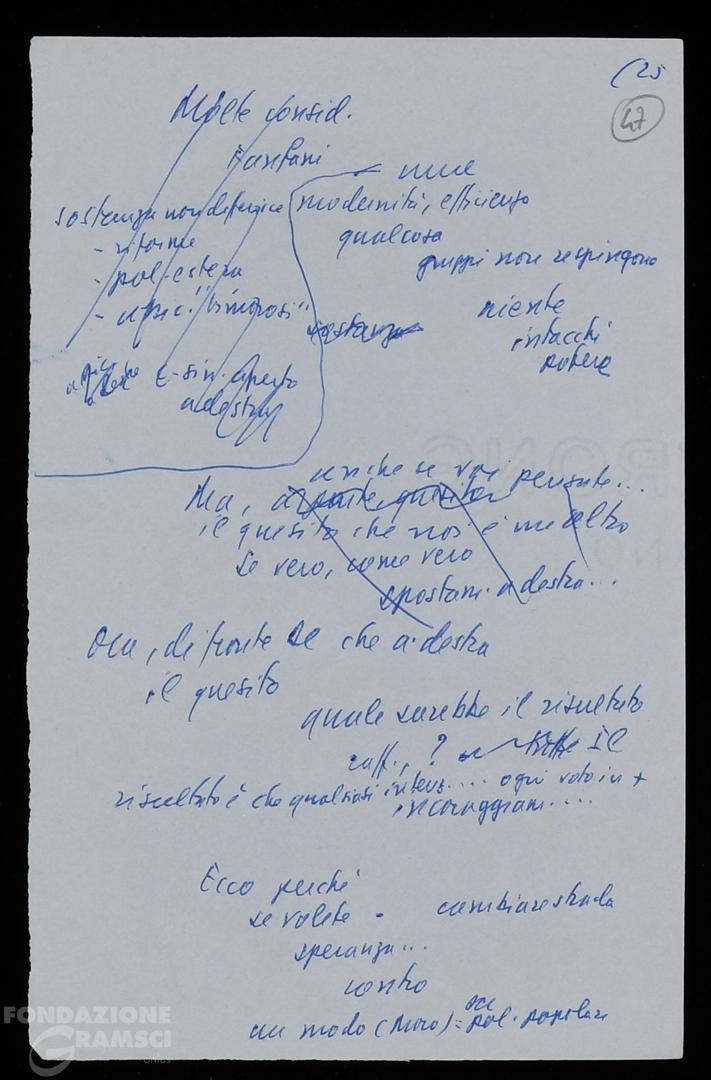 (25
47
Molte consid.
Fanfani
sostanza non definisce
- riforme
- pol. estera
- "timorosi"
c-sin. aperto
a destra
modernità, efficienza
qualcosa
gruppi non respingono
niente
intacchi
potere
sostanza
anche se voi pensate...
Ma,
il quesito che noi è un altro
se vero, come vero
spostam. a destra...
Ora, di fronte che a destra
il quesito
quale sarebbe il risultato
raff., ? Il
risultato è che qualsiasi ogni voto in +
incoraggiam....
Ecco perché
se volete - cambiare strada
speranza...
contro
un modo (Moro) = pol. popolare
FONDAZIONE
GRAMSCI
ONLUS